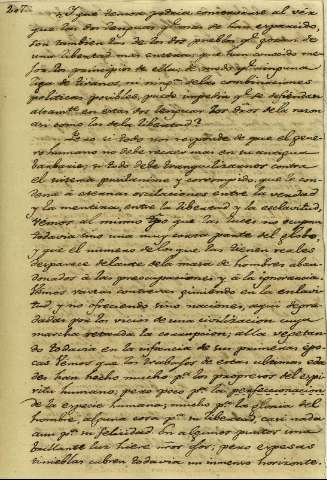 207
¿Y que temor podria concebirse al ver
que las dos lenguas que mas se han esparcido,
son tambien las de los dos pueblos qe. gozan de
una libertad mas entera; que han conocido me-
jor los principios de ella; de modo qe. ninguna
liga de tiranos, ningª. de las combinaciones
politicas posibles, puede impedir qe. se defiendan
altamte. en estas dos lenguas los dros. de la razon
asi como los de la libertad?
Pero si todo nos responde de que el gene-
ro humano no debe recaer en su antigua
barbarie, si todo debe tranquilizarnos contra
el sistema pusilanime y corrompido que le con-
dena á eternas oscilaciones entre la verdad
y la mentira, entre la libertad y la esclavitud,
vemos al mismo tpo que las luces no ocupan
todavia sino una muy corta parte del globo,
y que el numero de los que las tienen reales
desaparece delante de la masa de hombres aban-
donados á las preocupaciones y á la ignorancia.
Vemos vastas comarcas gimiendo en la esclavi-
tud, y no ofreciendo sino naciones, aqui degra-
dadas por los vicios de una civilizacion cuya
marcha retarda la corrupcion; alla vegetan-
do todavia en la infancia de sus primeras épo-
cas. Vemos que los trabajos de estas ultimas eda-
des han hecho mucho pr. los progresos del espi-
ritu humano; pero poco pr. la perfeccion
de la especie humana; mucho pr. la gloria del
hombre, alguna cosa pr. su libertad, casi nada
aun pr. su felicidad. En algunos puntos una
brillante luz hiere nros. ojos; pero espesas
tinieblas cubren todavia un inmenso horizonte.